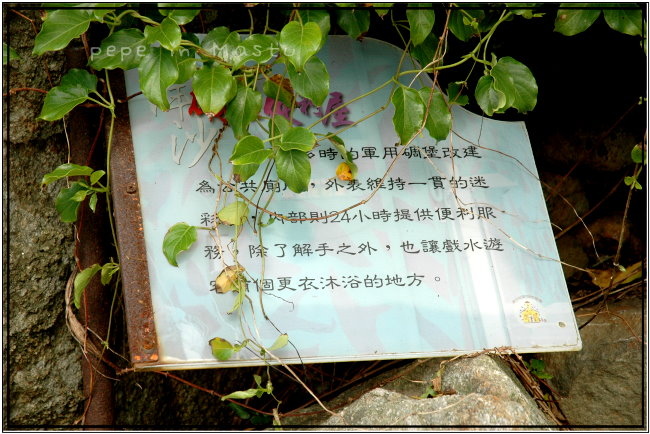 pepe in Matsu
時的軍用碉堡改建
為公共廁所，外表維持一貫的迷
彩，內部則24小時提供便利服
務，除了解手之外，也讓戲水遊
個更衣沐浴的地方。